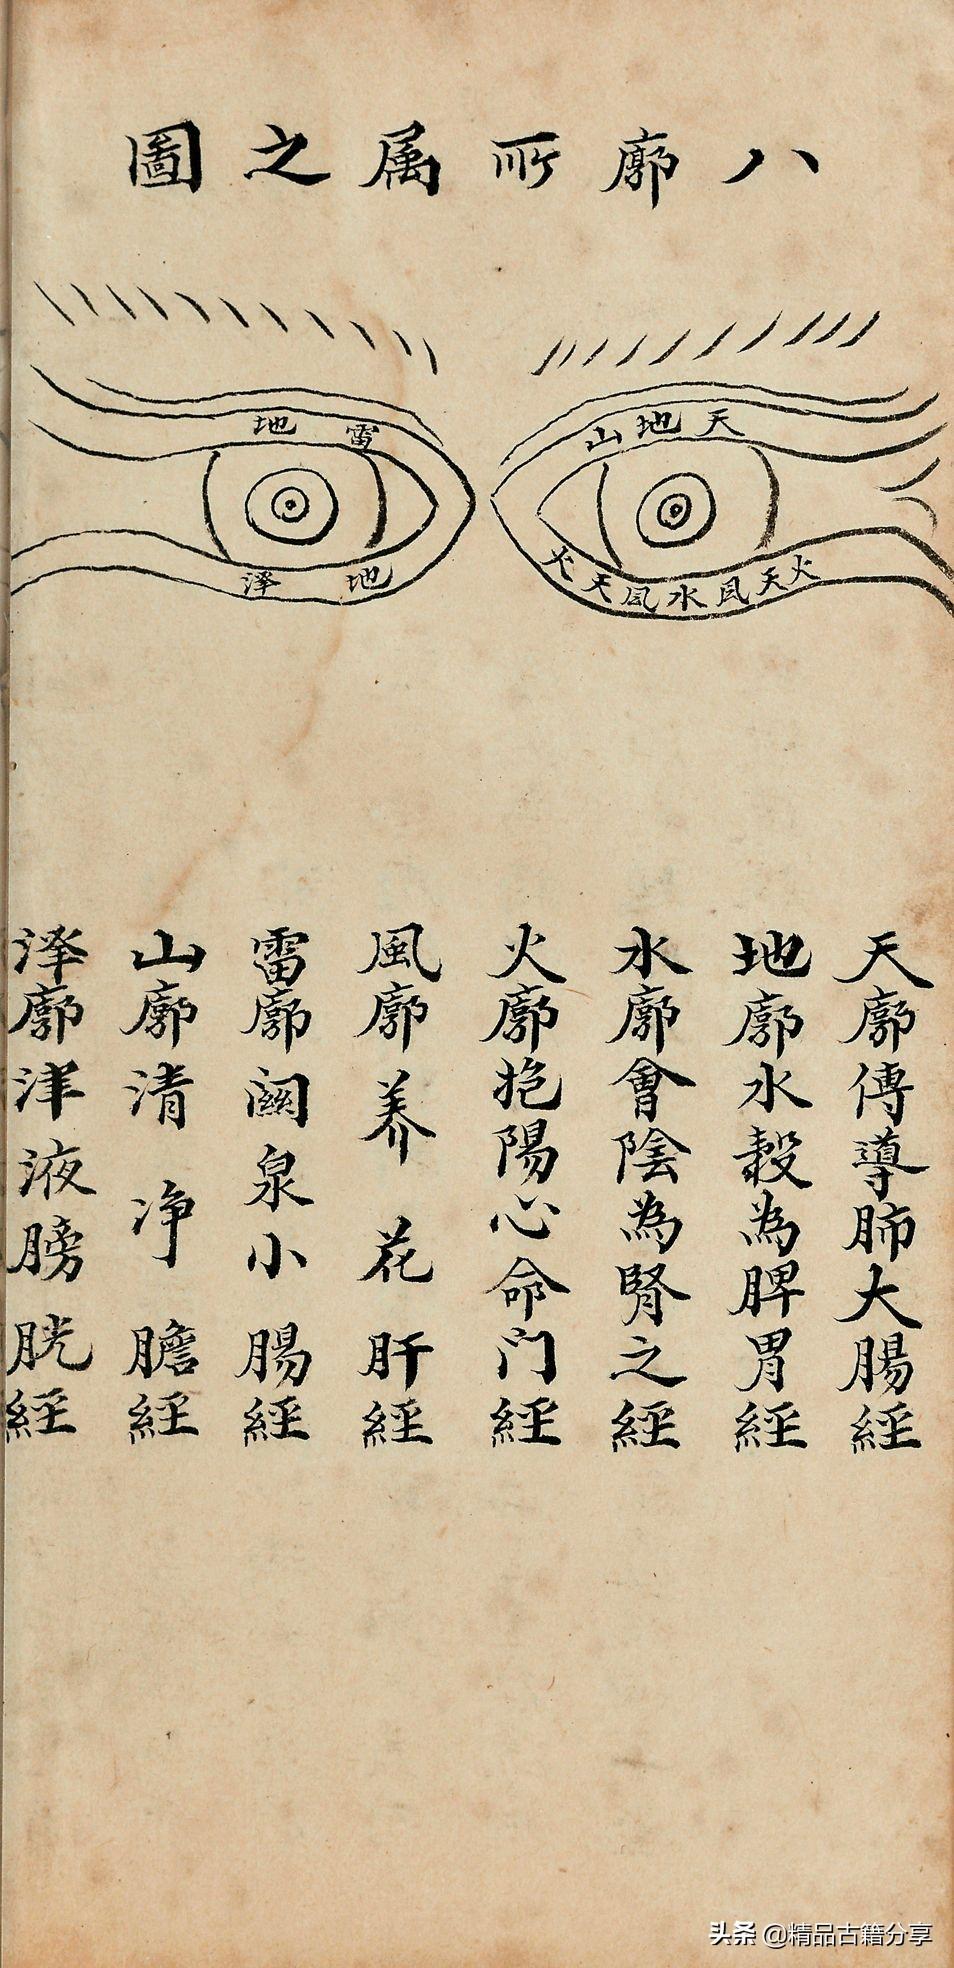 八廓所属之圖
天地山
火天風水風天火
雷地
地泽
天廓傳導肺大腸經
地廓水穀為脾胃經
水廓會陰為腎之經
火廓抱陽心命门經
風廓养花肝經
雷廓關泉小腸經
山廓清净膽經
泽廓津液膀胱經
头条 @精品古籍分享